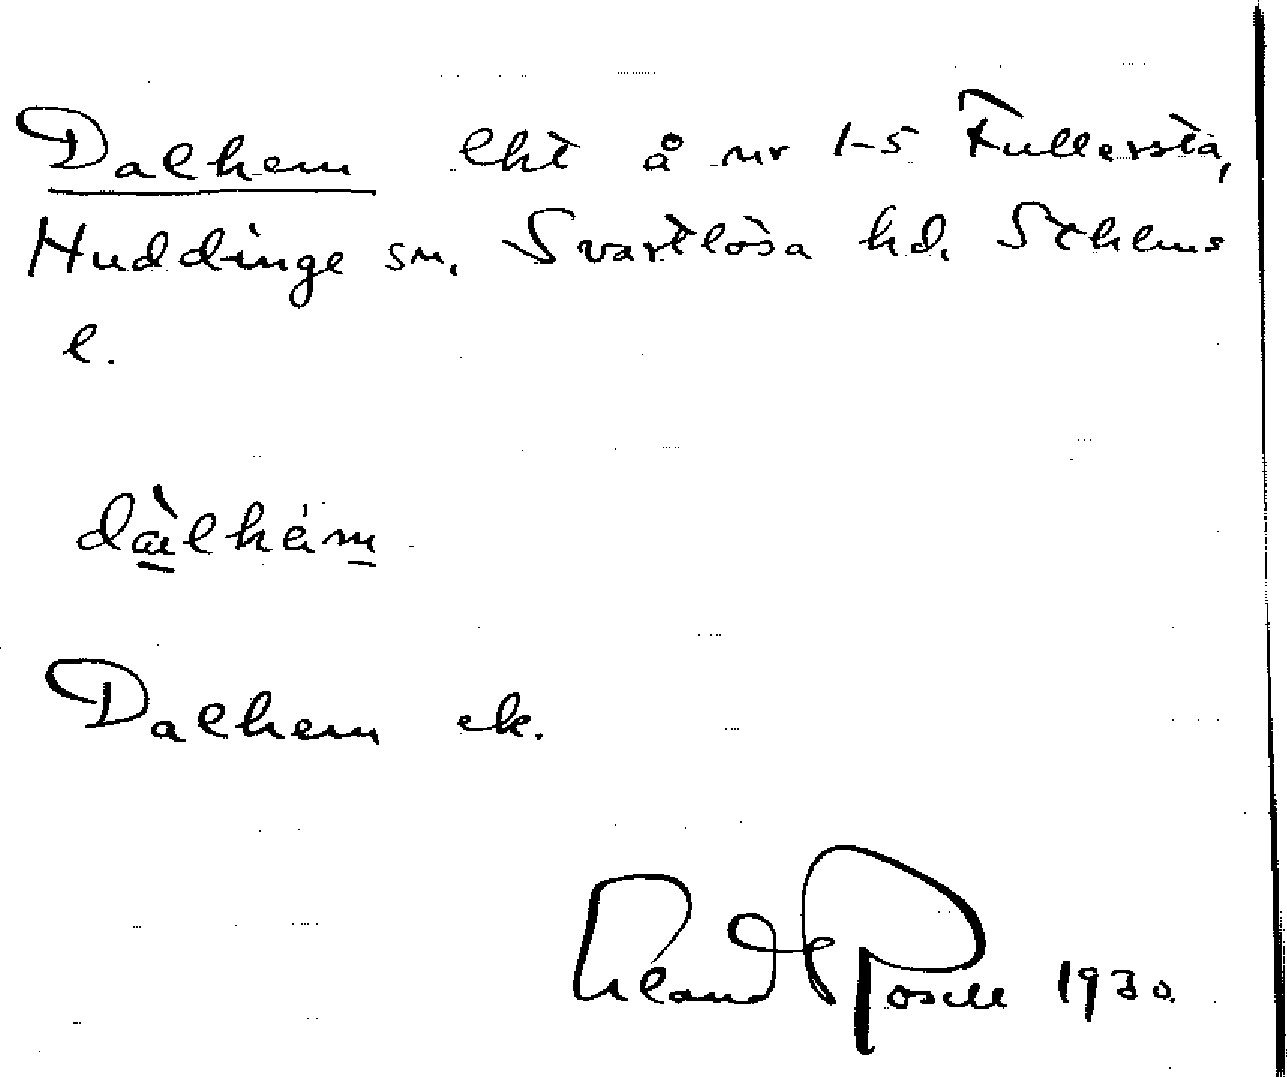 Dalhem lht å nr 1-5 Fullersta,
Huddinge sn, Svartlösa hd. Sthlms
l.
dàlhém
Dalhem ek.
Erland Rosell 1930